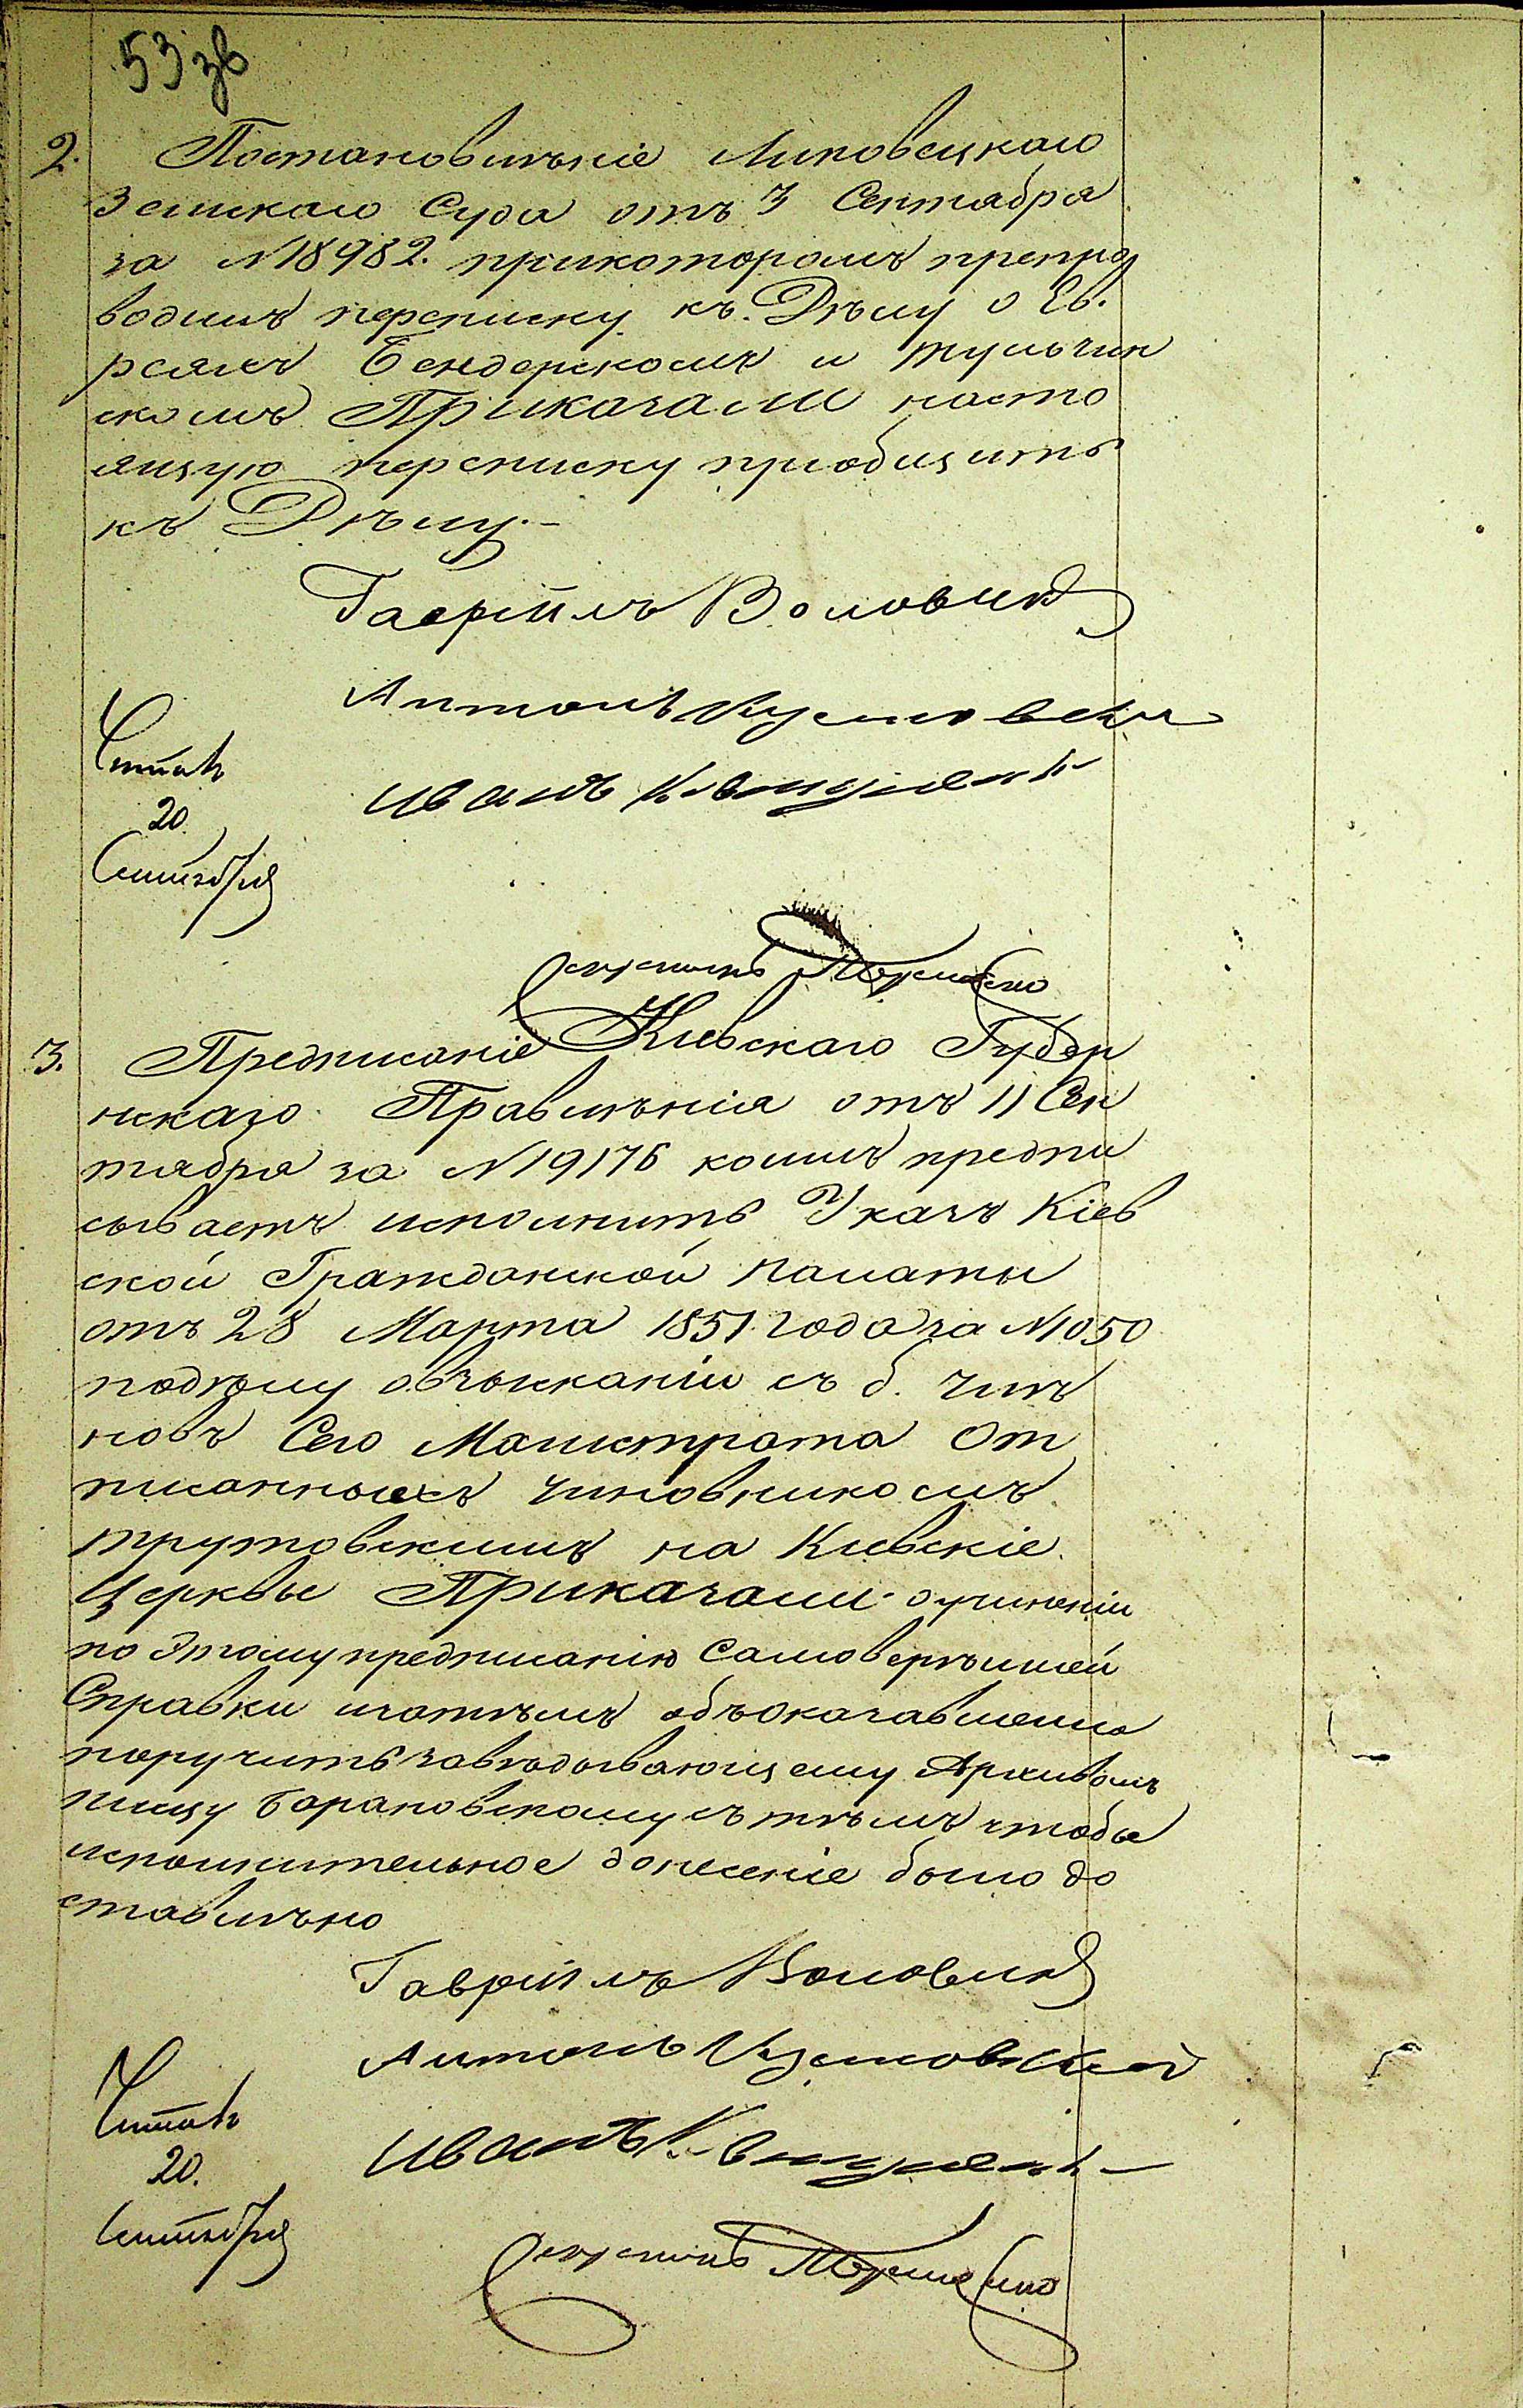 53 зв
2. Постановлѣніе Липовецкаго
Земскаго Суда отъ 3 Сентября
за N 18982. прикоторомъ препро
водилъ переписку къ Дѣлу о Ев.
реяхъ Бендерскомъ и Тульчин
скомъ Приказали насто
ящую переписку пріобщить
къ Дѣлу.-
Гавріилъ Воловик
Антонъ
Читалъ
Иванъ
20.
Сентября
Секретарь
3. Предписаніе Киевскаго Губерн
нскаго Правлѣнія отъ 11 Сен
тября за N 19176 коимъ предпи
сываетъ исполнить Указъ Кіев
ской Гражданской Палаты
отъ 28 Марта 1851 года за N 1050
подѣлу овзысканіи съ б. чле
новъ Сего Магистрата От
писанныхъ Чиновникомъ
Трутовскимъ на Киевскіе
Церквы Приказали очиненіи
по Этому предписанію Самовернѣйшей
Справки изатѣмъ объоказавшемся
поручить завѣдывающему Архивомъ
писцу Барановскому съ тѣмъ чтобы
исполнительное донесеніе было до
ставлѣно
Гавріилъ Воловик
Антонъ
Читалъ
Иванъ
20.
Сентября
Секретарь